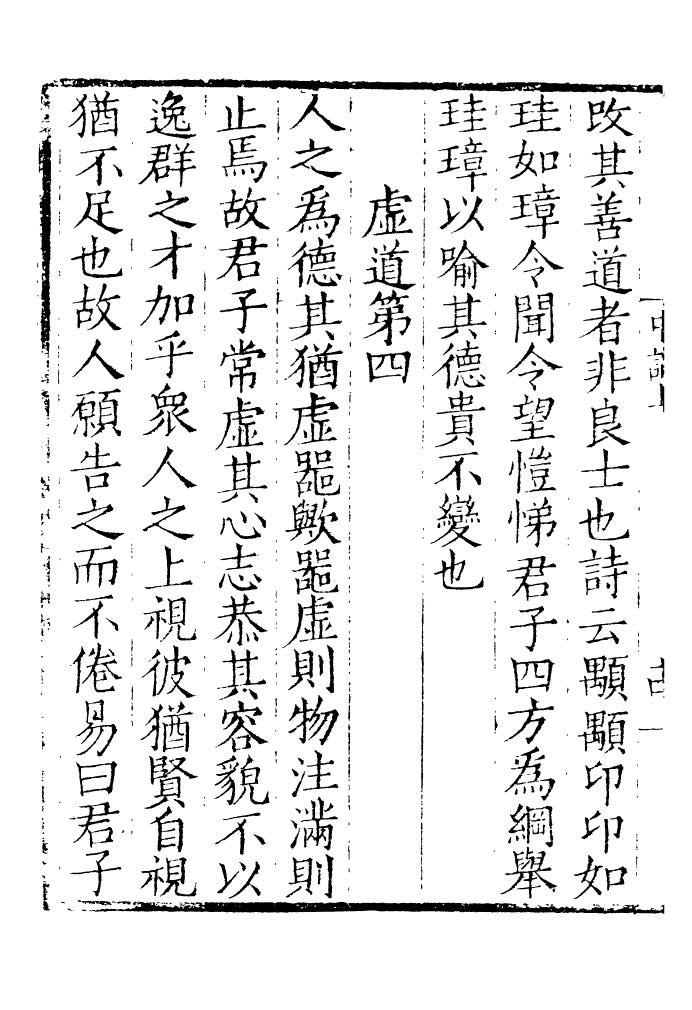 改其善道者非良士也詩云顒顒卬卬如
珪如璋令聞令望愷悌君子四方為綱舉
珪璋以喻其德貴不變也
虛道第四
人之為德其猶虛器歟器虛則物注滿則
止焉故君子常虛其心志恭其容貌不以
逸群之才加乎眾人之上視彼猶賢自視
猶不足也故人願告之而不倦易曰君子